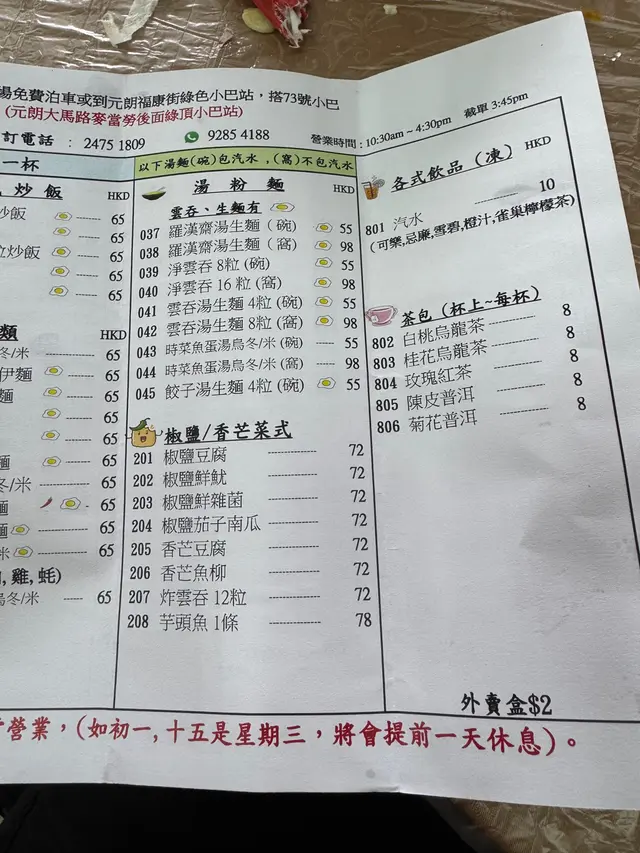 場免費泊車或到元朗福康街綠色小巴站，搭73號小巴
(元朗大馬路麥當勞後面綠頂小巴站)
訂電話 : 2475 1809 9285 4188 營業時間 : 10:30am ~ 4:30pm 截單 3:45pm
一杯
炒飯 HKD
炒飯 65
65
粒炒飯 65
65
65
麵 HKD
冬/米 65
伊麵 65
麵 65
65
65
麵 65
冬/米 65
麵 65
麵 65
米 65
, 雞, 蚝)
烏冬/米 65
以下湯麵(碗)包汽水 , (窩)不包汽水
湯 粉 麵 HKD
雲吞、生麵有
037 羅漢齋湯生麵 (碗) 55
038 羅漢齋湯生麵 (窩) 98
039 淨雲吞 8粒 (碗) 55
040 淨雲吞 16 粒 (窩) 98
041 雲吞湯生麵 4粒 (碗) 55
042 雲吞湯生麵 8粒 (窩) 98
043 時菜魚蛋湯烏冬/米 (碗) 55
044 時菜魚蛋湯烏冬/米 (窩) 98
045 餃子湯生麵 4粒 (碗) 55
椒鹽/香芒菜式
201 椒鹽豆腐 72
202 椒鹽鮮魷 72
203 椒鹽鮮雜菌 72
204 椒鹽茄子南瓜 72
205 香芒豆腐 72
206 香芒魚柳 72
207 炸雲吞 12粒 72
208 芋頭魚 1條 78
各式飲品 (凍) HKD
801 汽水 10
(可樂,忌廉,雪碧,橙汁,雀巢檸檬茶)
茶包 (杯上~每杯)
802 白桃烏龍茶 8
803 桂花烏龍茶 8
804 玫瑰紅茶 8
805 陳皮普洱 8
806 菊花普洱 8
外賣盒$2
營業，(如初一, 十五是星期三，將會提前一天休息)。